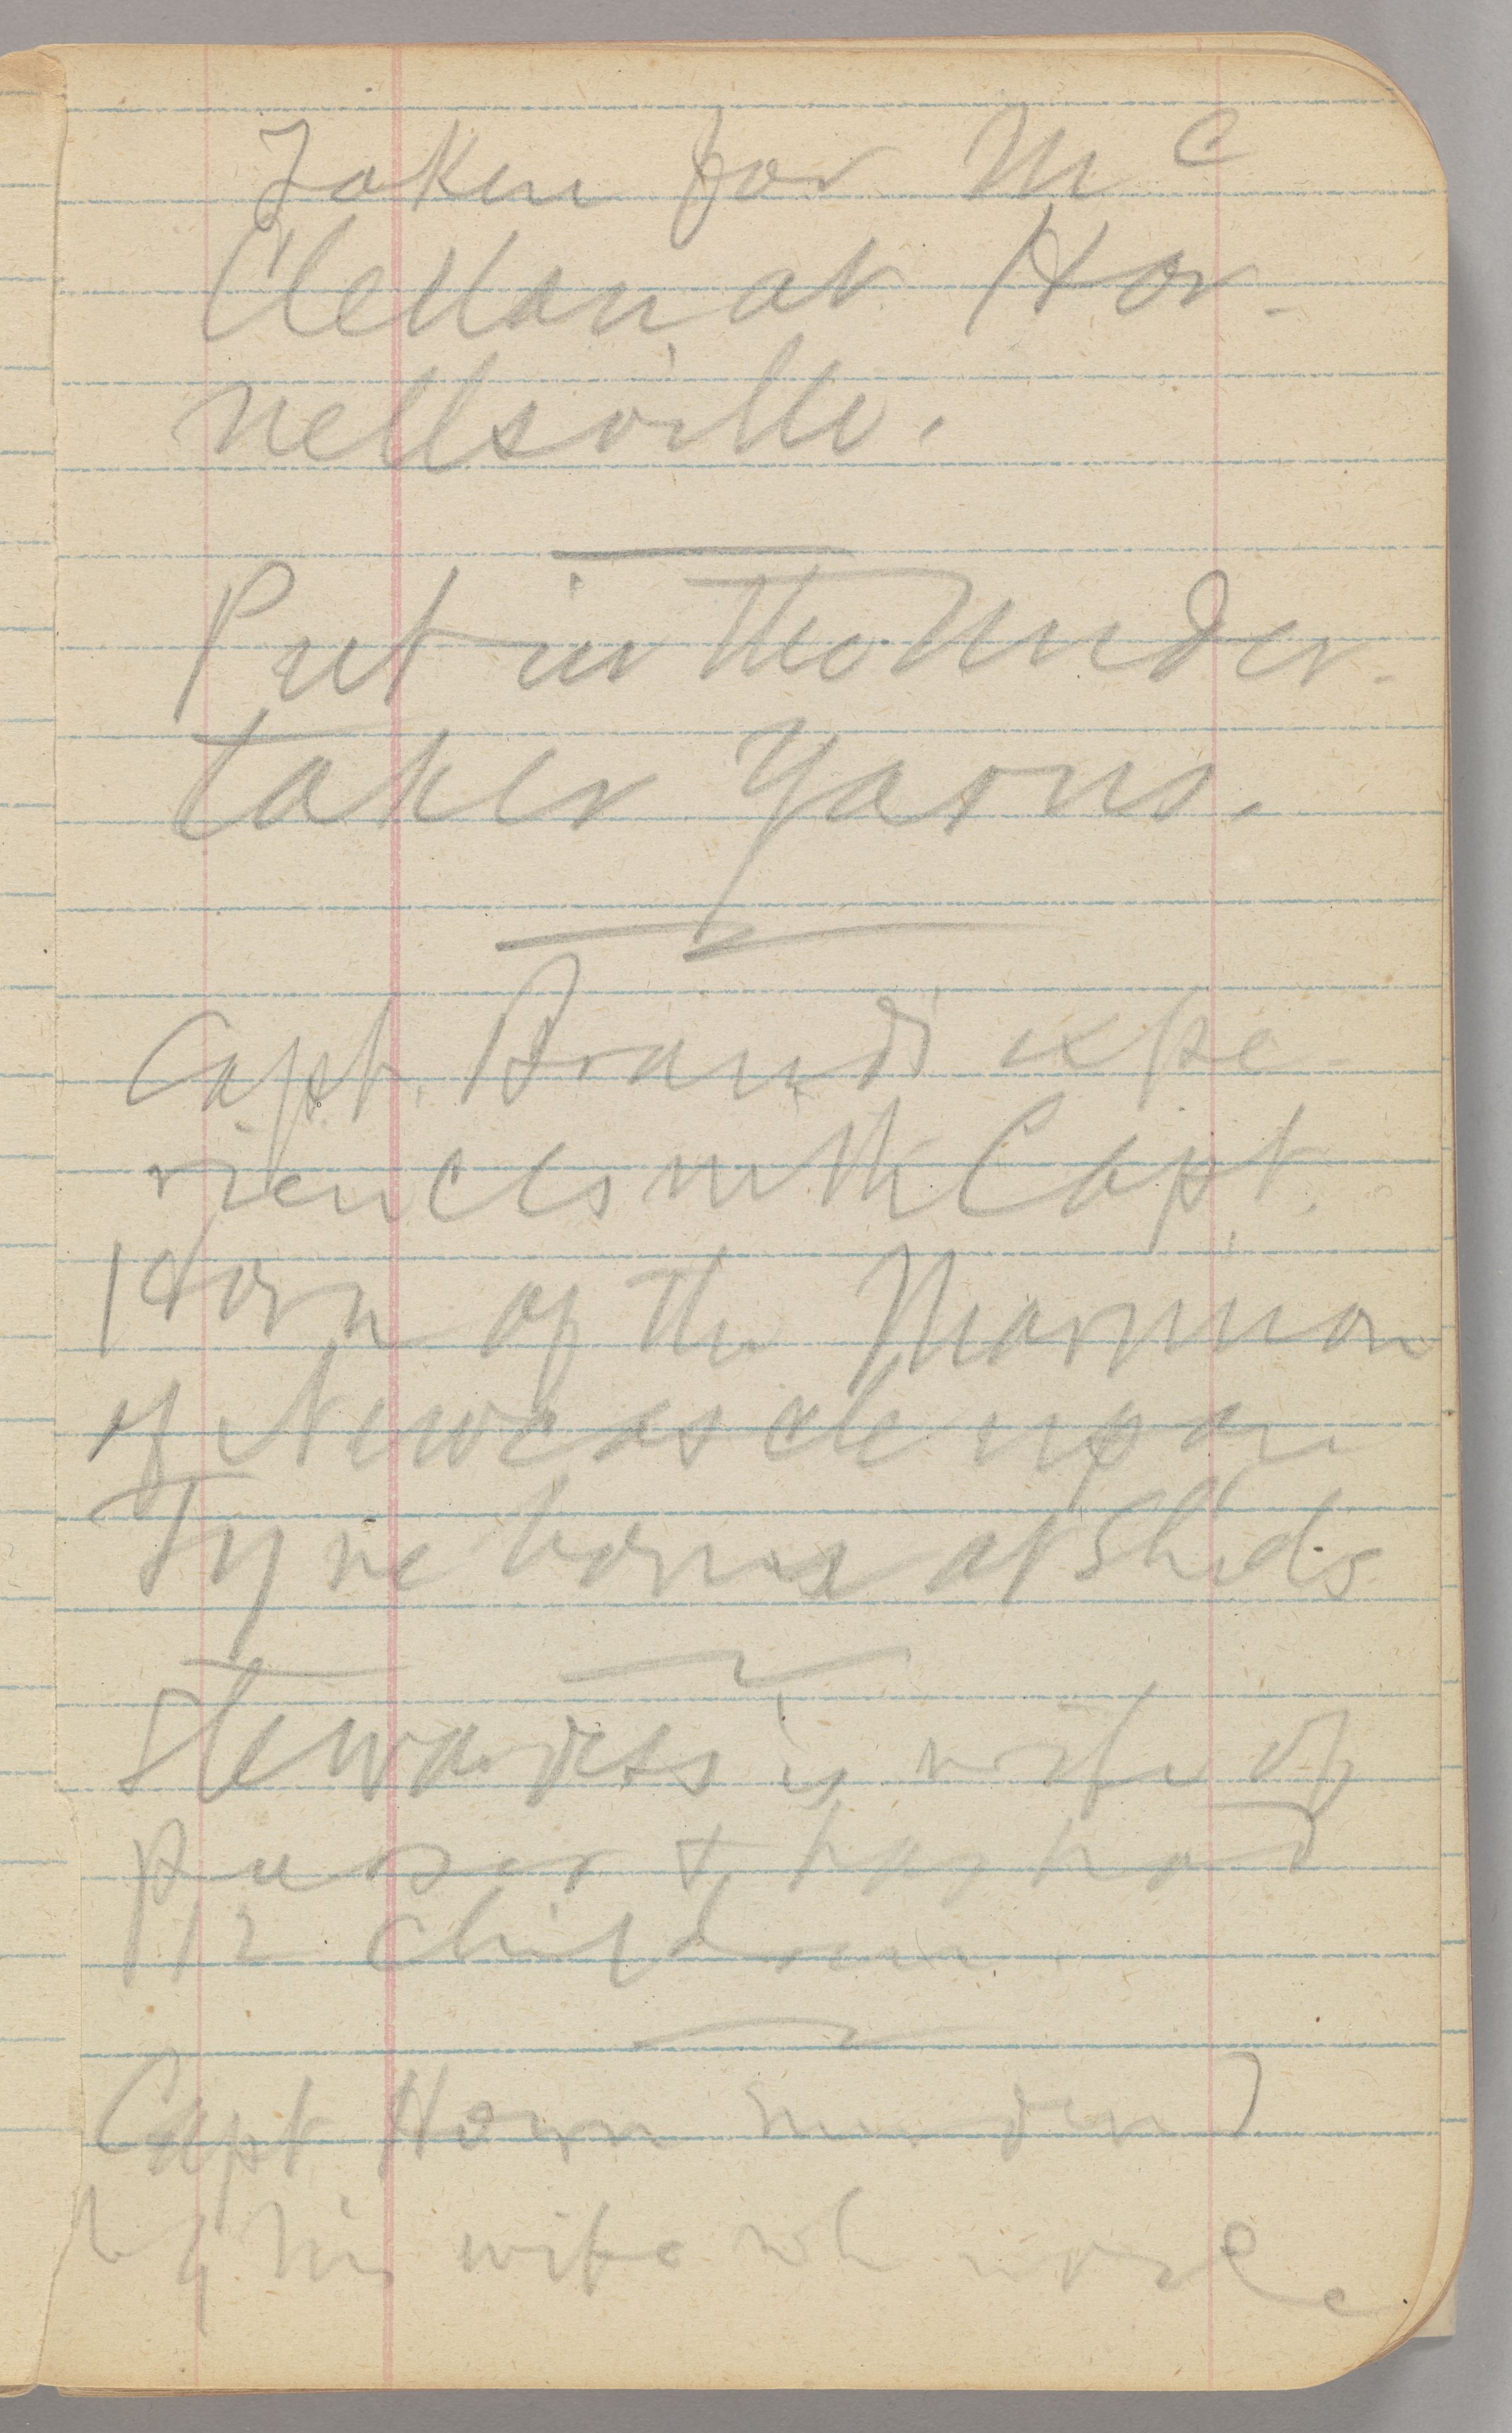 Taken for Mc
Clellan at Hor-
nellsville.
Put in the Under-
taker yarns.
Capt. Brand's expe-
riences with Capt.
Horn of the Marmion
of Newcastle upon
Tyne home at Shields
Stewardess is wife of
purser & has had
12 children.
Capt Horn murdered
by his wife wh